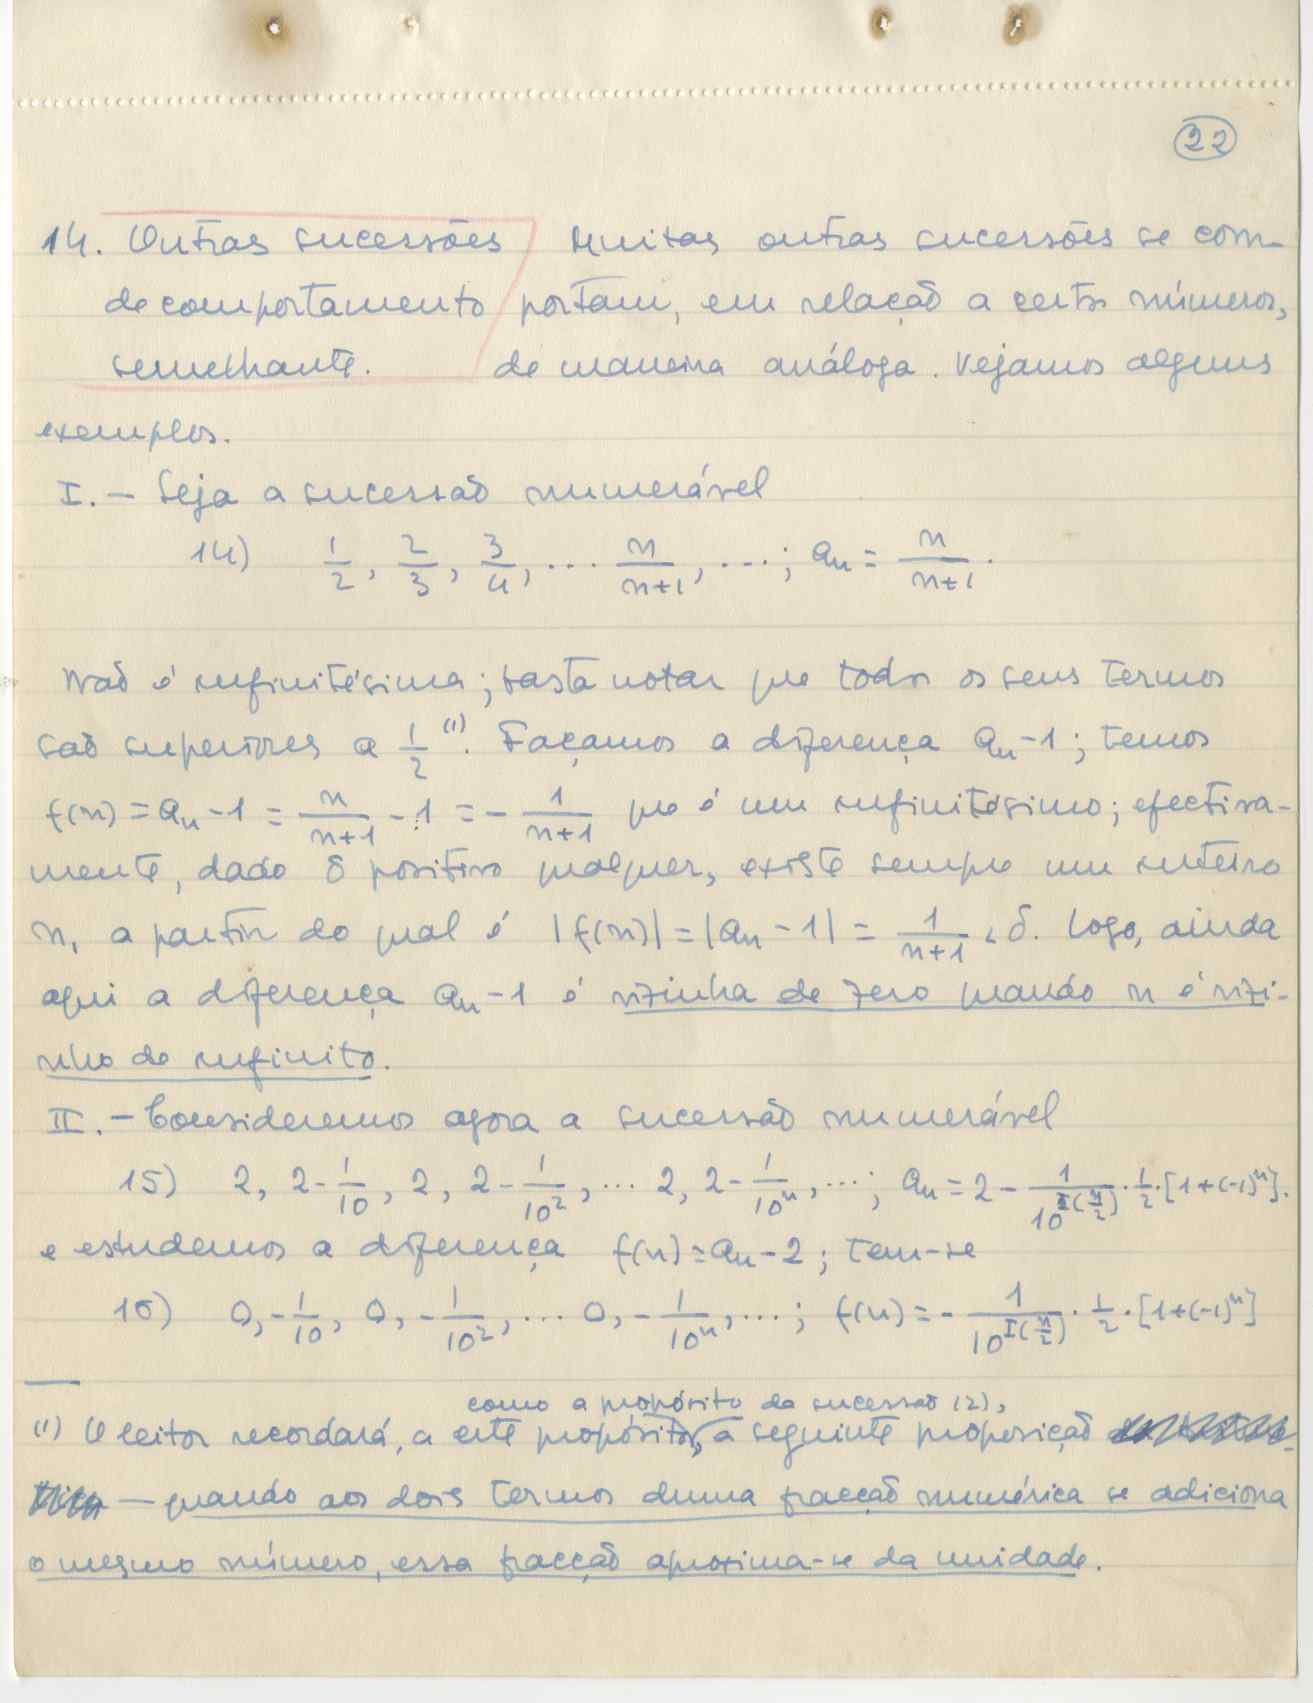 22
14. Outras sucessões Muitas outras sucessões se com-
de comportamento portam, em relação a certos números,
semelhante. de maneira análoga. Vejamos alguns
exemplos.
I. — Seja a sucessão numerável
14) 1/2, 2/3, 3/4, ... n/(n+1), ...; aₙ = n/(n+1).
Não é infinitésima; basta notar que todos os seus termos
são superiores a 1/2 ⁽¹⁾. Façamos a diferença aₙ-1; temos
f(n) = aₙ-1 = n/(n+1) - 1 = - 1/(n+1) que é um infinitésimo; efectiva-
mente, dado δ positivo qualquer, existe sempre um inteiro
n, a partir do qual é |f(n)| = |aₙ-1| = 1/(n+1) < δ. Logo, ainda
aqui a diferença aₙ-1 é vizinha de zero quando n é vizi-
nho de infinito.
II. — Consideremos agora a sucessão numerável
15) 2, 2-1/10, 2, 2-1/10², ... 2, 2-1/10ⁿ, ...; aₙ = 2 - 1/10^I(n/2) · 1/2 · [1+(-1)ⁿ].
e estudemos a diferença f(n) = aₙ-2; tem-se
16) 0, -1/10, 0, -1/10², ... 0, -1/10ⁿ, ...; f(n) = - 1/10^I(n/2) · 1/2 · [1+(-1)ⁿ]
como a propósito da sucessão 12),
(1) O leitor recordará, a este propósito, a seguinte proposição
— quando aos dois termos duma fracção numérica se adiciona
o mesmo número, essa fracção aproxima-se da unidade.